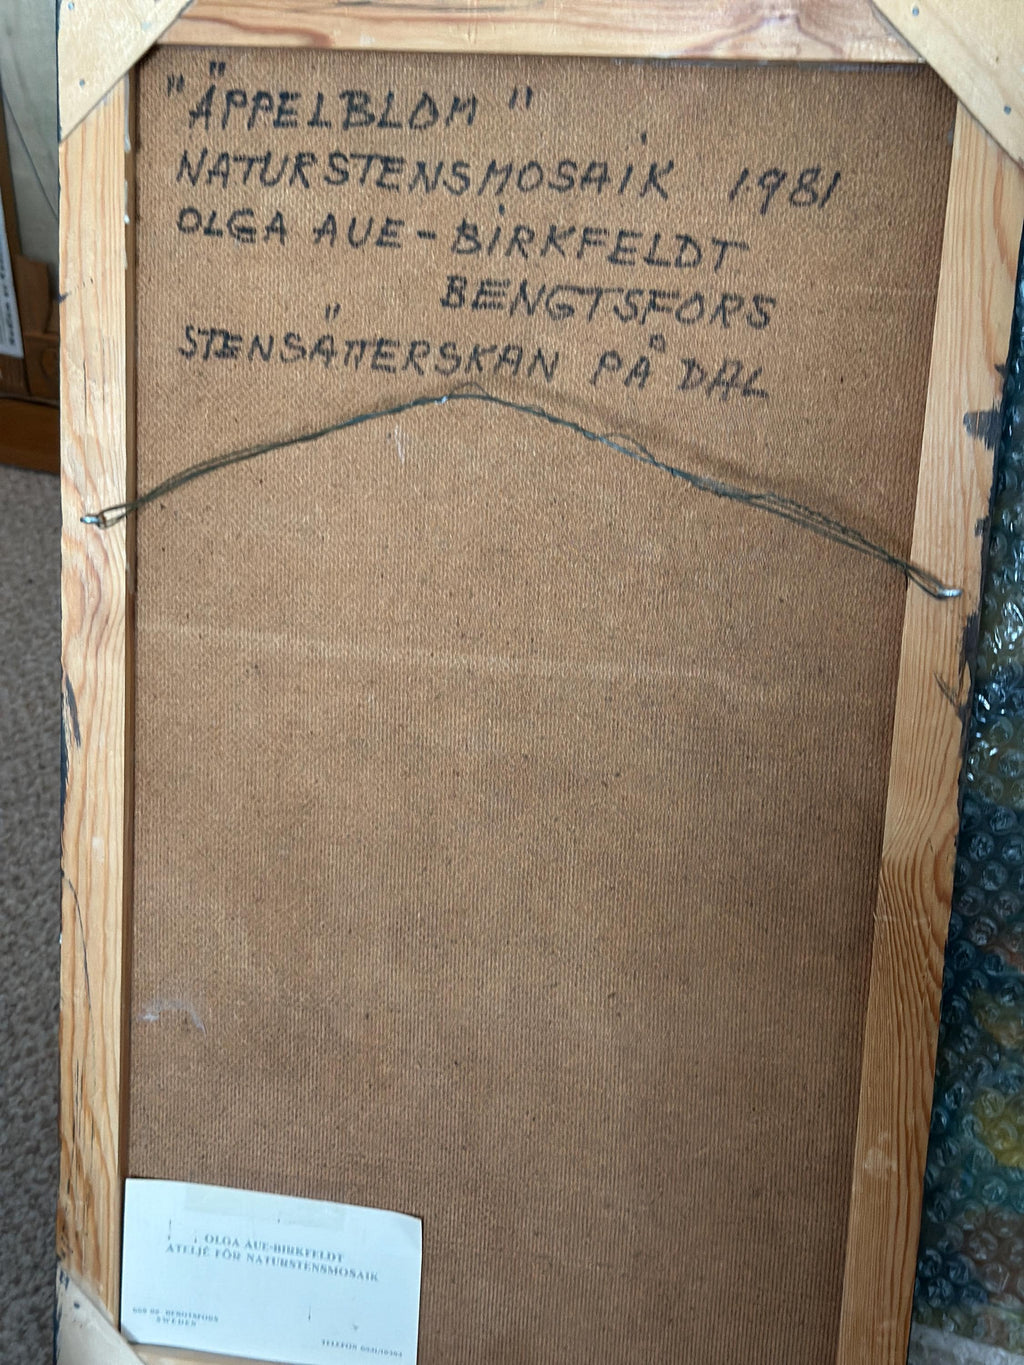 "ÄPPELBLOM"
NATURSTENSMOSAIK 1981
OLGA AUE-BIRKFELDT
BENGTSFORS
STENSÄTTERSKAN PÅ DAL
OLGA AUE-BIRKFELDT
ATELJÉ FÖR NATURSTENSMOSAIK
BENGTSFORS
SWEDEN
TELEFON